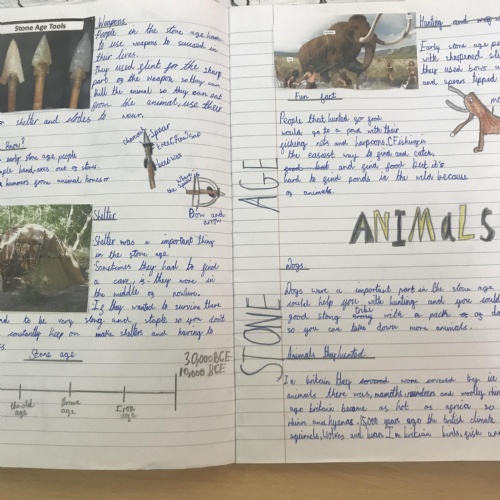 Stone Age Tools
Weapons
People in the stone age have
to use weapons to succeed in
their lives.
They used flint for the sharp
part of the weapon so they can
kill the animal so they can eat
from the animal, use their
for shelter and clothes to wear.
Know?
early stone age people
hand axes out of stone
hammers from animal bones or
Spear
Bow and
arrow
Shelter
Shelter was a important thing
in the stone age.
Sometimes they had to find
a cave, is they were in
the middle of nowhere.
If they wanted to survive there
to be very strong and staple so you don't
constantly keep on make shelters and having to
Stone age
30,000 BCE
10,000 BCE
the old
age
Bronze
age
Iron
age
STONE AGE
Hunting and
Early stone age peo
with sharpened sti
they used bows a
and spears tipped
Fun fact
People that hunted for food
would go to a pond with their
fishing nets and harpoons. Fishing is
the easiest way to find and catch
food but and find food but it's
hard to find ponds in the wild because
of animals.
ANIMALS
Dogs.
Dogs were a important part in the stone age
could help you with hunting and you could
good strong tribe with a pack of do
so you can take down more animals.
Animals they hunted.
In britain they were covered by ice
animals there was, mamoths, reindeers and woolley rhin
age britain became as hot as africa so
rhino and hyenas. 15,000 year ago the british climate
squirrels, wolves and bears. In britain birds, fish and